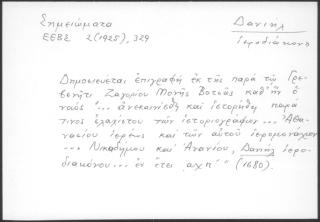 Σημειώματα
ΕΕΒΣ 2(1925), 329
Δανιήλ
ἱεροδιάκονος
Δημοσιεύεται ἐπιγραφὴ ἐκ τῆς παρὰ τῷ Γρε-
βενήτι Ζαγορίου Μονῆς Βοτσᾶς καθ' ἣν ὁ
ναὸς "... ἀνεκαινίσθη καὶ ἱστορήθη παρά
τινος ἐλαχίστου τῶν ἱστοριογράφων... Ἀθα-
νασίου ἱερέως καὶ τῶν αὐτοῦ ἱερομονάχων
... Νικοδήμου καὶ Ἀνανίου, Δανιὴλ ἱερο-
διακόνου... ἐν ἔτει αχπ'" (1680).